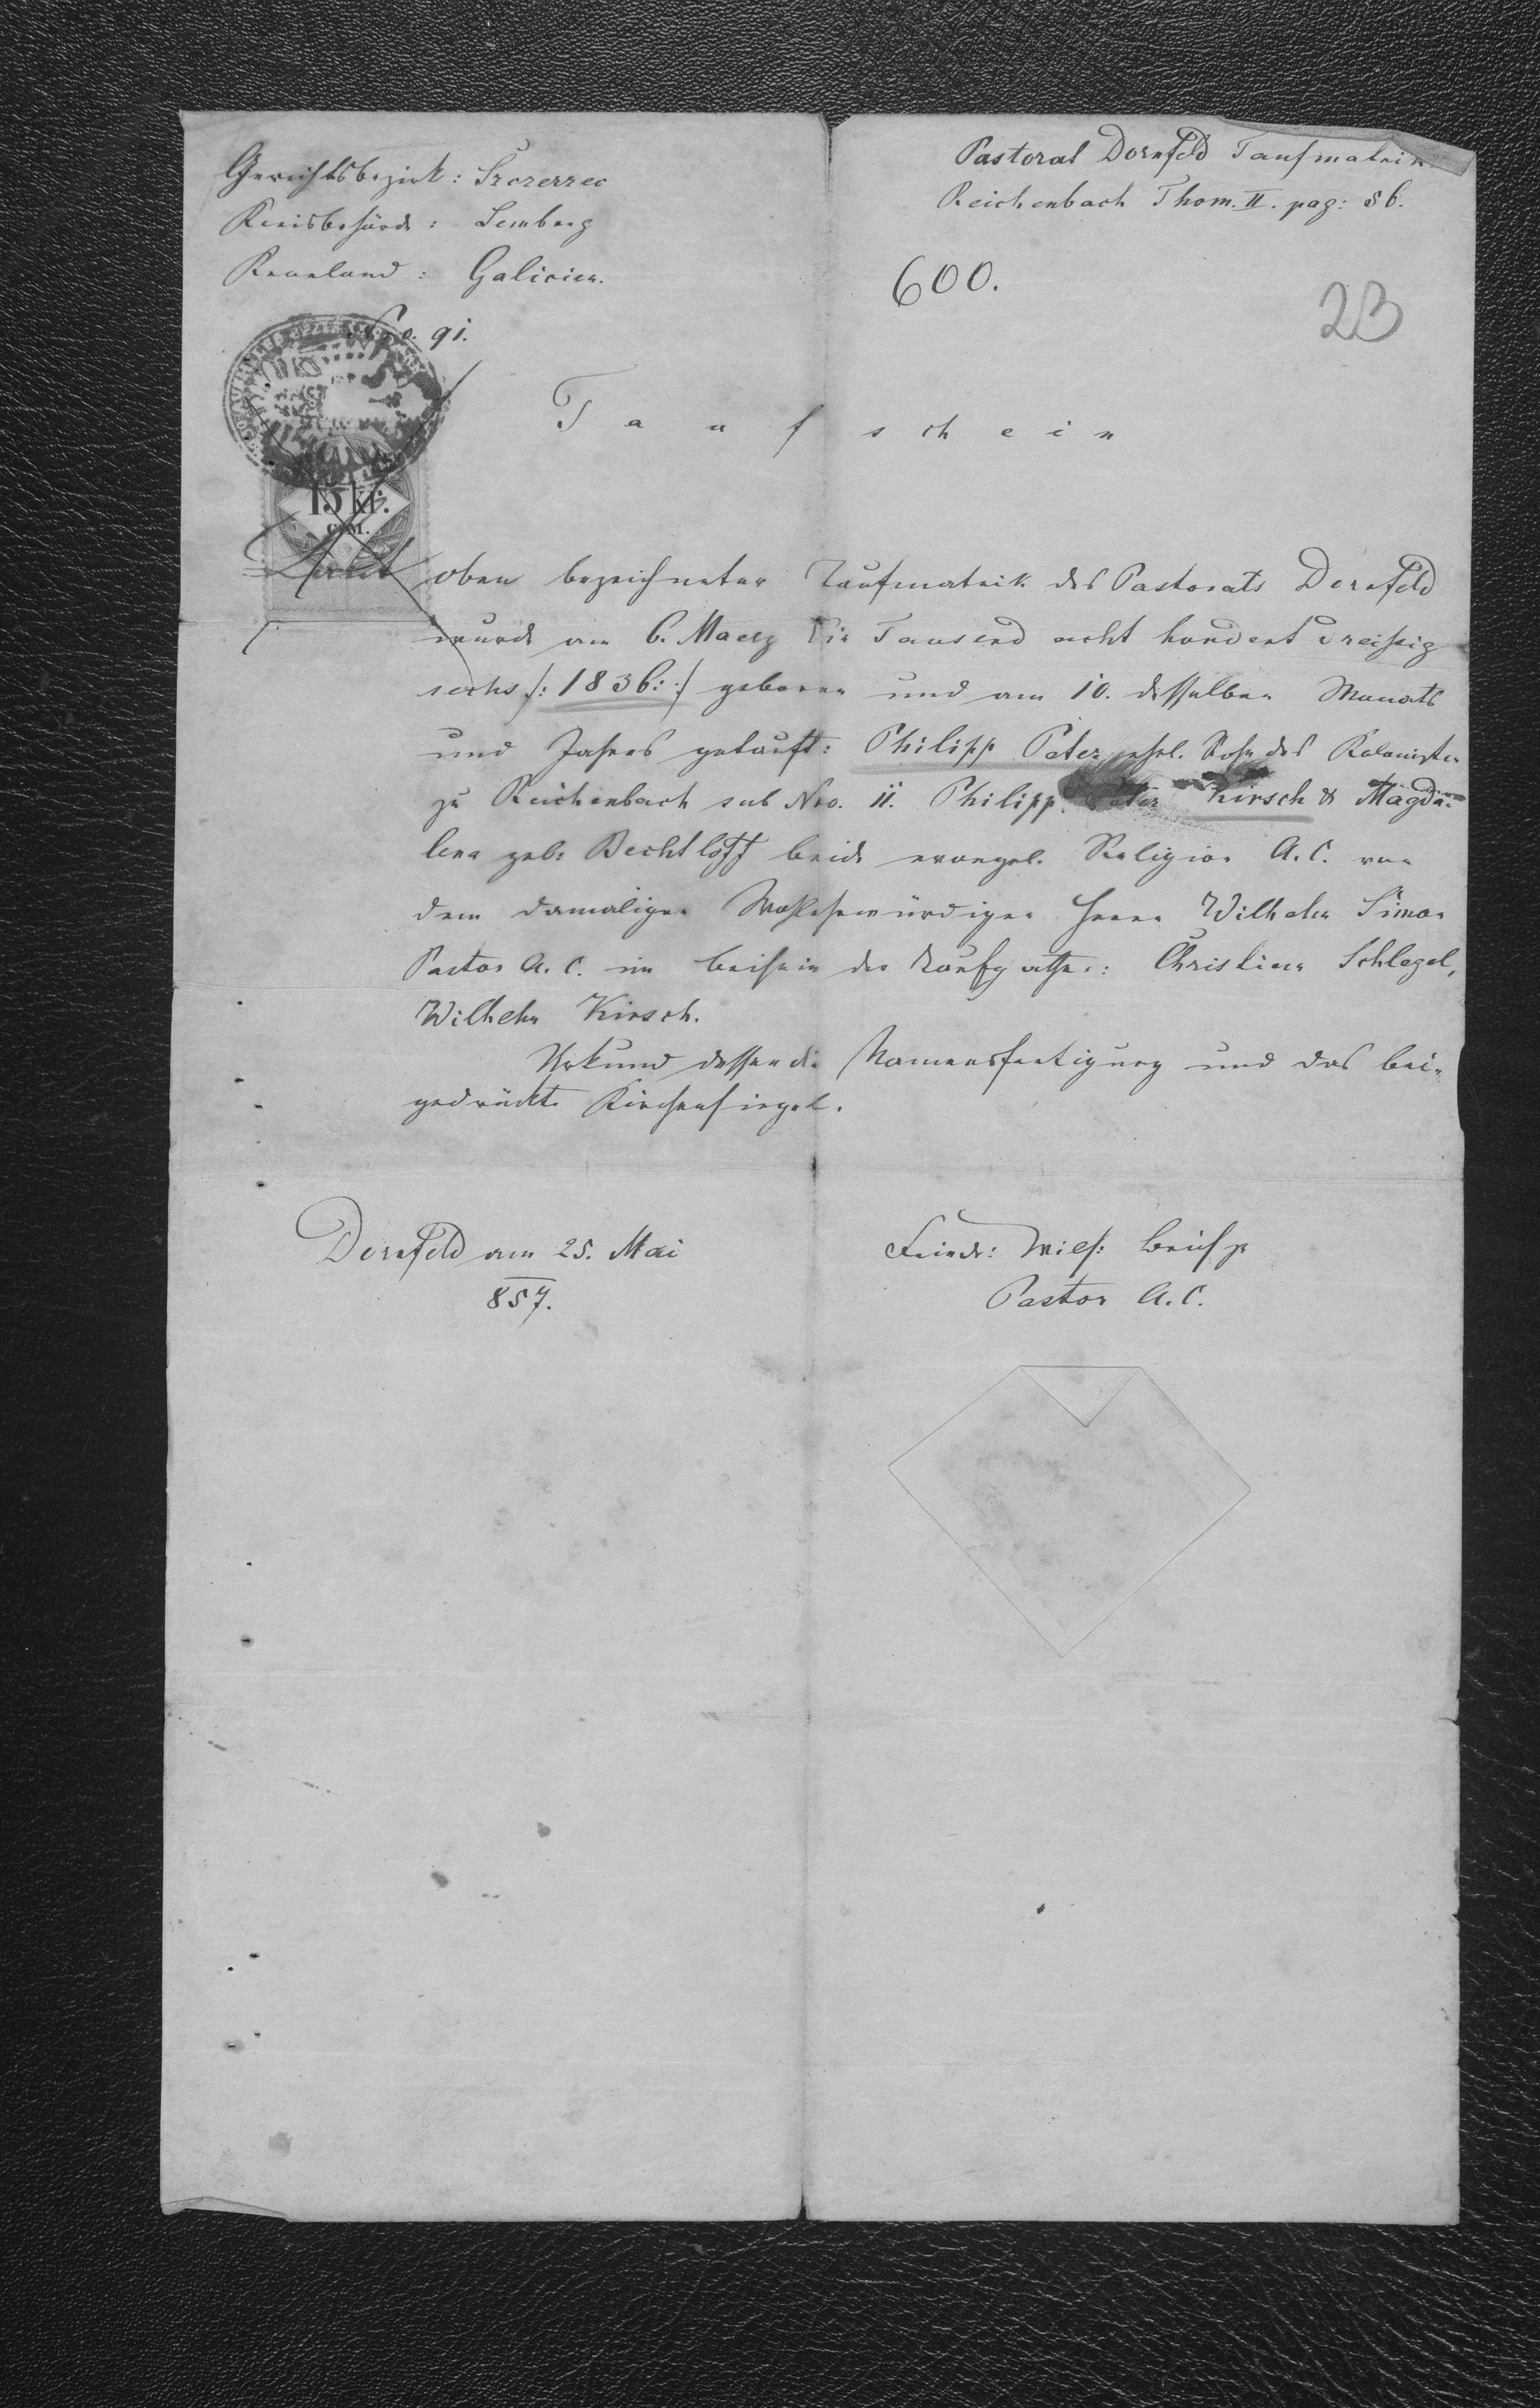 Gerichtsbezirk: Szczerzec
Kreisbehörde: Lemberg
Kronland: Galicien.
Nro. 91.
Pastorat Dornfeld Taufmatrik
Reichenbach Thom. II. pag: 56.
600.
23
Taufschein
15 kr.
C.M.
Laut oben bezeichneter Taufmatrik des Pastorats Dornfeld
wurde am 6. Maerz Ein Tausend acht hundert dreißig
sechs /: 1836 :/ geboren und am 10. desselben Monats
und Jahres getauft: Philipp Peter ehel. Sohn des Kolonisten
zu Reichenbach sub Nro. 11. Philipp Peter Kirsch & Magda-
lena geb: Bechtloff beide evangel. Religion A.C. von
dem damaligen Wohlehrwürdigen Herrn Wilhelm Simon
Pastor A.C. im Beisein der Taufpathen: Christian Schlegel,
Wilhelm Kirsch.
Urkund dessen die Namensfertigung und das bei-
gedrückte Kirchensiegel.
Dornfeld am 25. Mai
857.
Friedr: Wilh:
Pastor A.C.